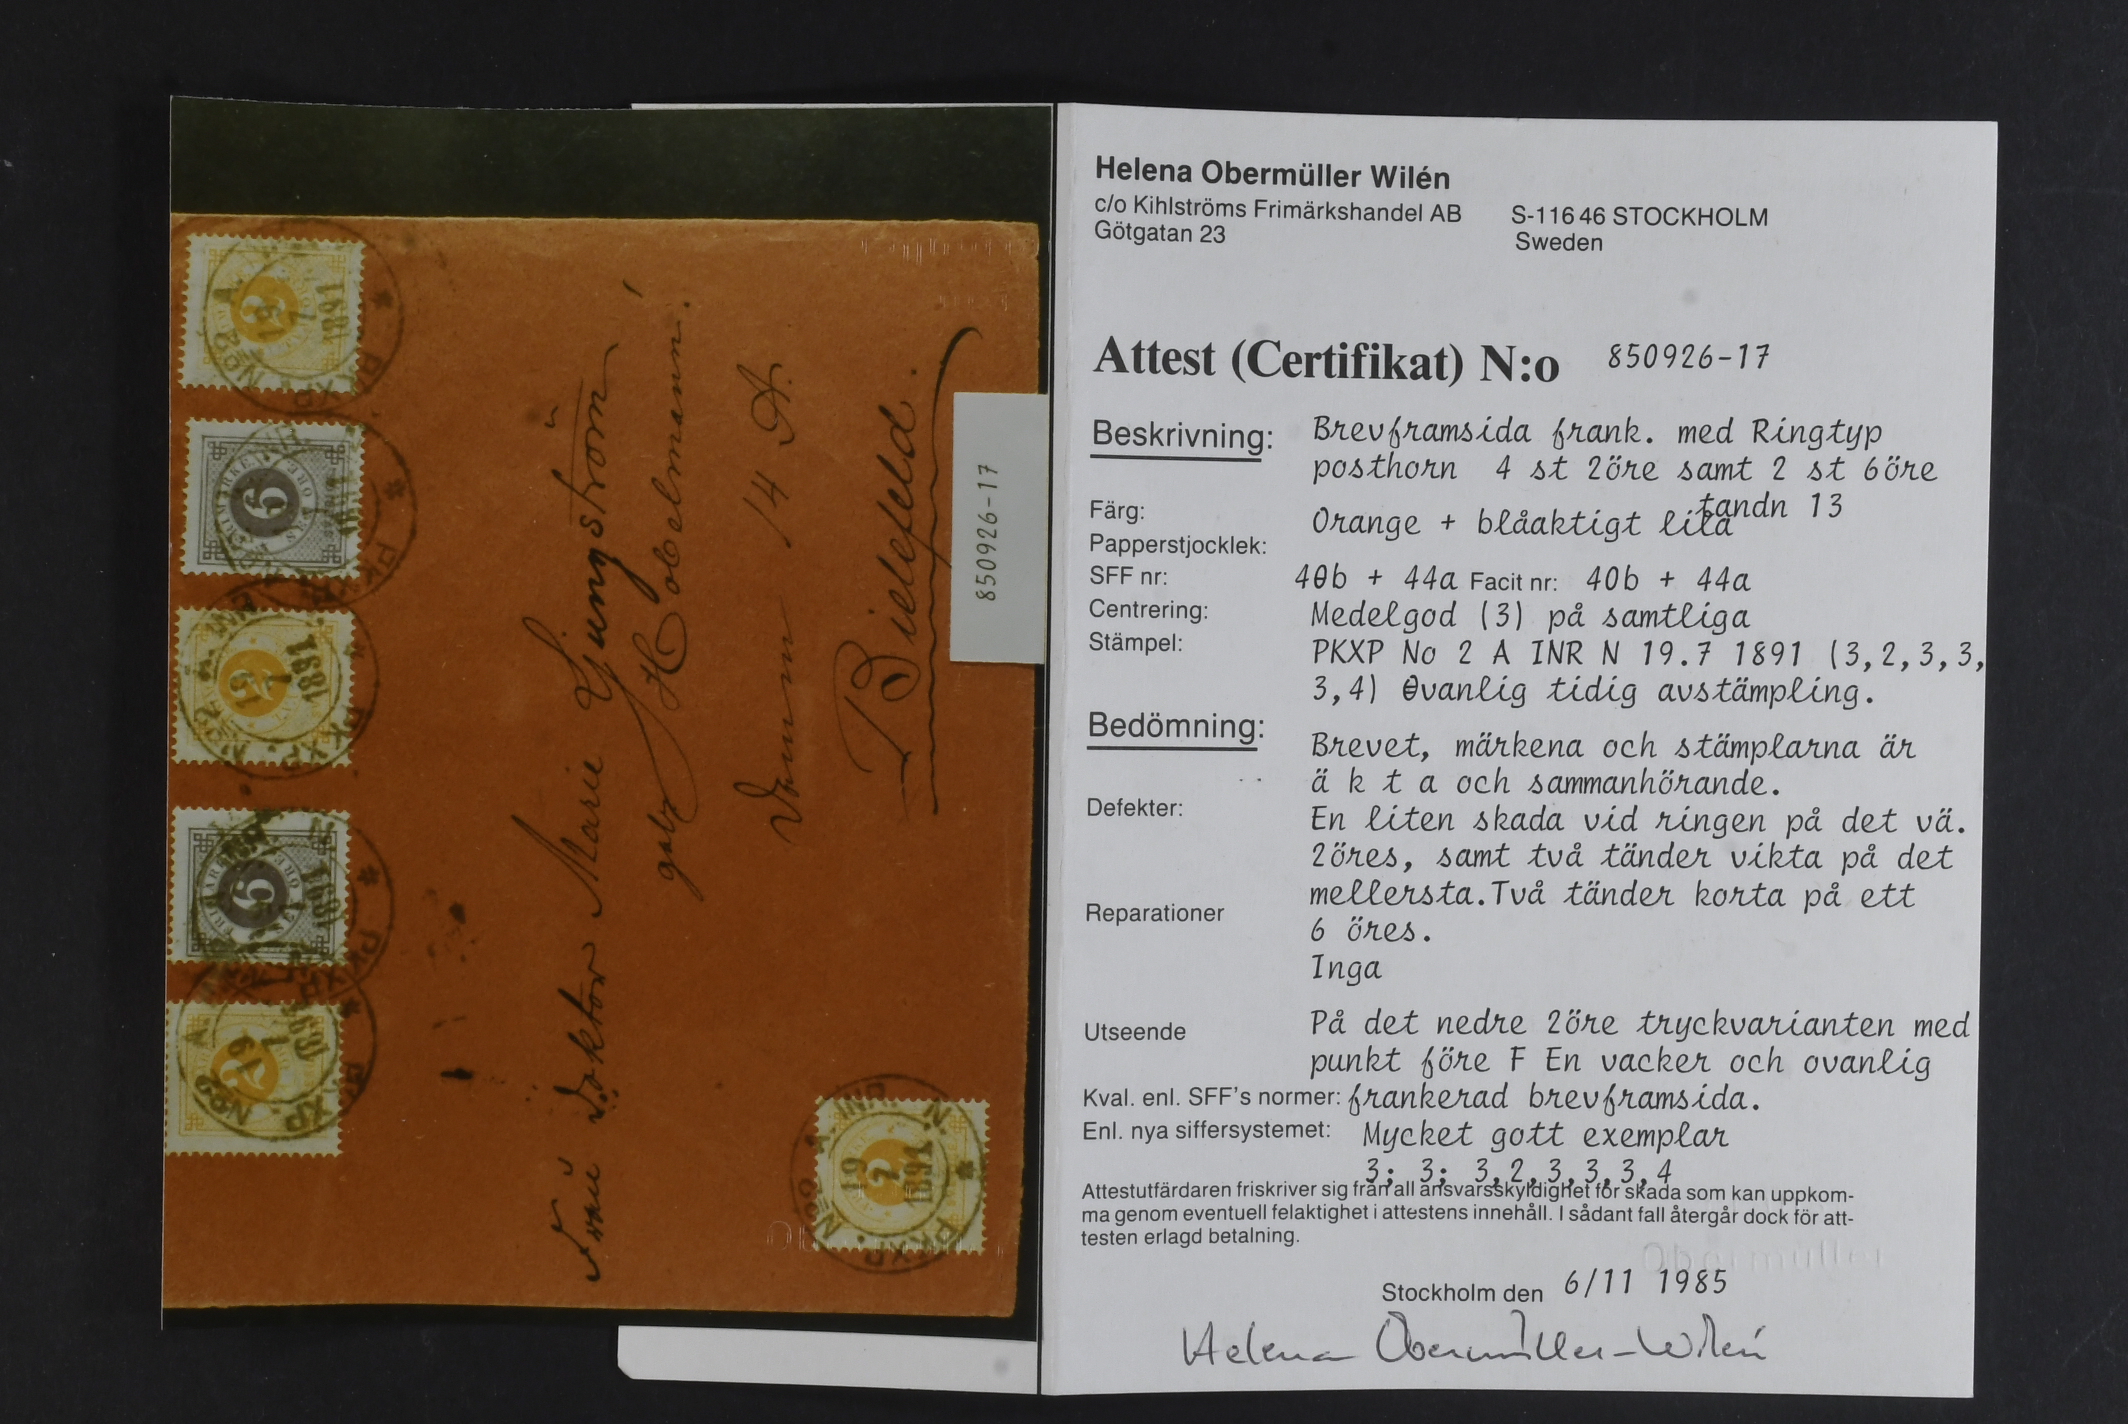 Frau Doktor Marie Ljungström
geb. Hobelmann.
14 A.
Bielefeld.
850926-17
2
PKXP. No 2 A.
19 7 1891
6
2
PKXP. No 2 A.
19 7 1891
6
2
PKXP. No 2 A.
19 7 1891
2
PKXP. No 2 A. INR N.
19 7 1891
Helena Obermüller Wilén
c/o Kihlströms Frimärkshandel AB S-116 46 STOCKHOLM
Götgatan 23 Sweden
Attest (Certifikat) N:o 850926-17
Beskrivning: Brevframsida frank. med Ringtyp
posthorn 4 st 2öre samt 2 st 6öre
tandn 13
Färg: Orange + blåaktigt lila
Papperstjocklek:
SFF nr: 40b + 44a Facit nr: 40b + 44a
Centrering: Medelgod (3) på samtliga
Stämpel: PKXP No 2 A INR N 19.7 1891 (3,2,3,3,
3,4) Ovanlig tidig avstämpling.
Bedömning: Brevet, märkena och stämplarna är
ä k t a och sammanhörande.
Defekter: En liten skada vid ringen på det vä.
2öres, samt två tänder vikta på det
mellersta. Två tänder korta på ett
Reparationer 6 öres.
Inga
Utseende På det nedre 2öre tryckvarianten med
punkt före F En vacker och ovanlig
Kval. enl. SFF's normer: frankerad brevframsida.
Enl. nya siffersystemet: Mycket gott exemplar
3; 3; 3,2,3,3,3,4
Attestutfärdaren friskriver sig från all ansvarsskyldighet för skada som kan uppkom-
ma genom eventuell felaktighet i attestens innehåll. I sådant fall återgår dock för att-
testen erlagd betalning.
Obermüller
Stockholm den 6/11 1985
Helena Obermüller-Wilén